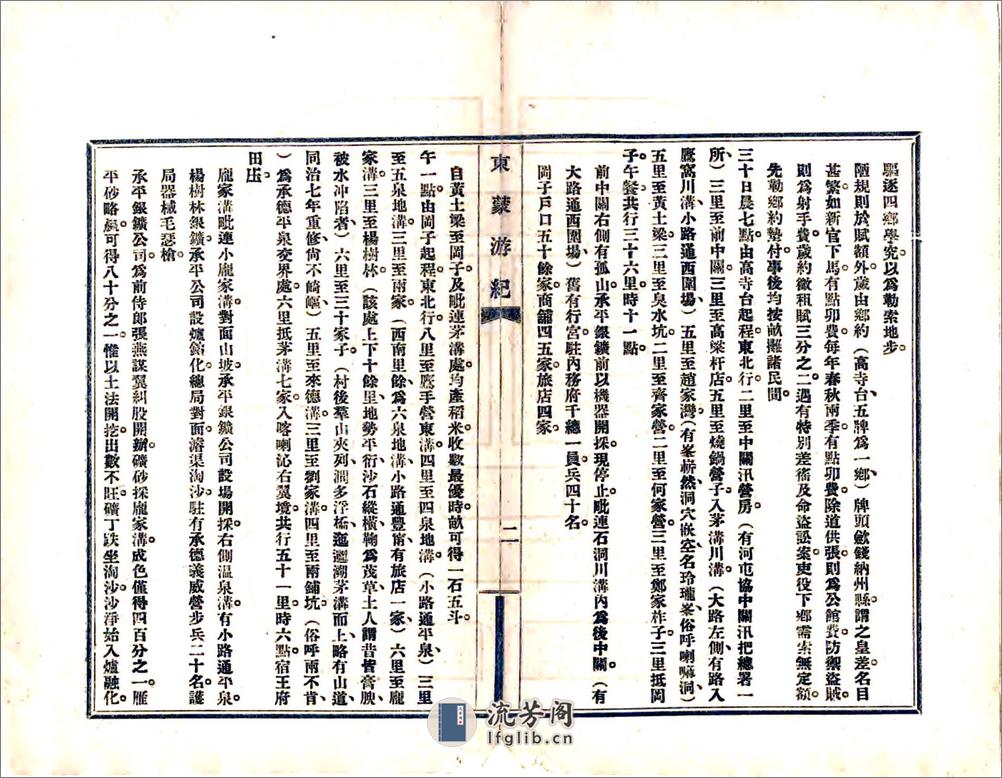 驅逐四鄉學究以爲勒索地步
陋規則於賦額外歲由鄉約（高寺台五牌爲一鄉）牌頭斂錢納州縣謂之皇差名目
甚繁如新官下馬有點卯費每年春秋兩季有點卯費除道供張則爲公館費防禦盜賊
則爲射手費歲約徵租賦三分之二遇有特別差徭及命盜訟案吏役下鄉需索無定額
先勒鄉約墊付事後均按畝攤諸民間
三十日晨七點由高寺台起程東北行二里至中關汛營房（有河屯協中關汛把總署一
所）三里至前中關三里至高粱杆店五里至燒鍋營子入茅溝川溝（大路左側有路入
鷹窩川溝小路通西圍場）五里至趙家灣（有峯嶄然洞穴嵌空名玲瓏峯俗呼喇嘛洞）
五里至黃土梁三里至臭水坑二里至齊家營二里至何家營三里至鄭家柞子三里抵岡
子午餐共行三十六里時十一點
前中關右側有孤山承平銀鑛前以機器開採現停止毗連石洞川溝內爲後中關（有
大路通西圍場）舊有行宮駐內務府千總一員兵四十名
岡子戶口五十餘家商舖四五家旅店四家
東蒙游紀
二
自黃土梁至岡子及毗連茅溝處均產稻米收數最優時畝可得一石五斗
午一點由岡子起程東北行八里至鷹手營東溝四里至四泉地溝（小路通平泉）三里
至五泉地溝三里至兩家（西南里餘爲六泉地溝小路通豐甯有旅店一家）六里至龐
家溝三里至楊樹林（該處上下十餘里地勢平衍沙石縱橫鞠爲茂草土人謂昔皆膏腴
被水沖陷者）六里至三十家子（村後羣山夾列澗多浮橋迤邐溯茅溝而上略有山道
同治七年重修尙不崎嶇）五里至來德溝三里至劉家溝四里至兩舖坑（俗呼兩不肯
）爲承德平泉交界處六里抵茅溝七家入喀喇沁右翼境共行五十一里時六點宿王府
田庄
龐家溝毗連小龐家溝對面山坡承平銀鑛公司設場開採右側温泉溝有小路通平泉
楊樹林銀鑛承平公司設爐鎔化總局對面濬渠淘沙駐有承德義威營步兵二十名護
局器械毛瑟槍
承平銀鑛公司爲前侍郎張燕謀翼糾股開辦礦砂採龐家溝成色僅得四百分之一雁
平砂略嬴可得八十分之一惟以土法開挖出數不旺礦丁趺坐淘沙沙淨始入爐融化
流芳阁
lfglib.cn